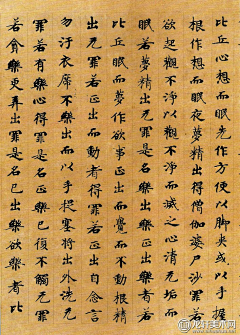 比丘心想而眠先作方便以脚夾或以手握
根作想而眠夜夢精出得僧伽婆沙罪若
欲起觀不淨以觀不淨而滅之心清无垢而
眠若夢精出无罪是名正樂出樂者若
比丘眠而夢作欲事正出而覺而不動根精
出无罪若正出而動者得罪若出自念言
勿汙衣席不樂出而以手捉塞將出外洗无
罪若有樂心得罪若正樂已復不觸无罪
若貪樂更弄出罪是名已出樂欲樂者比
龙轩美术网